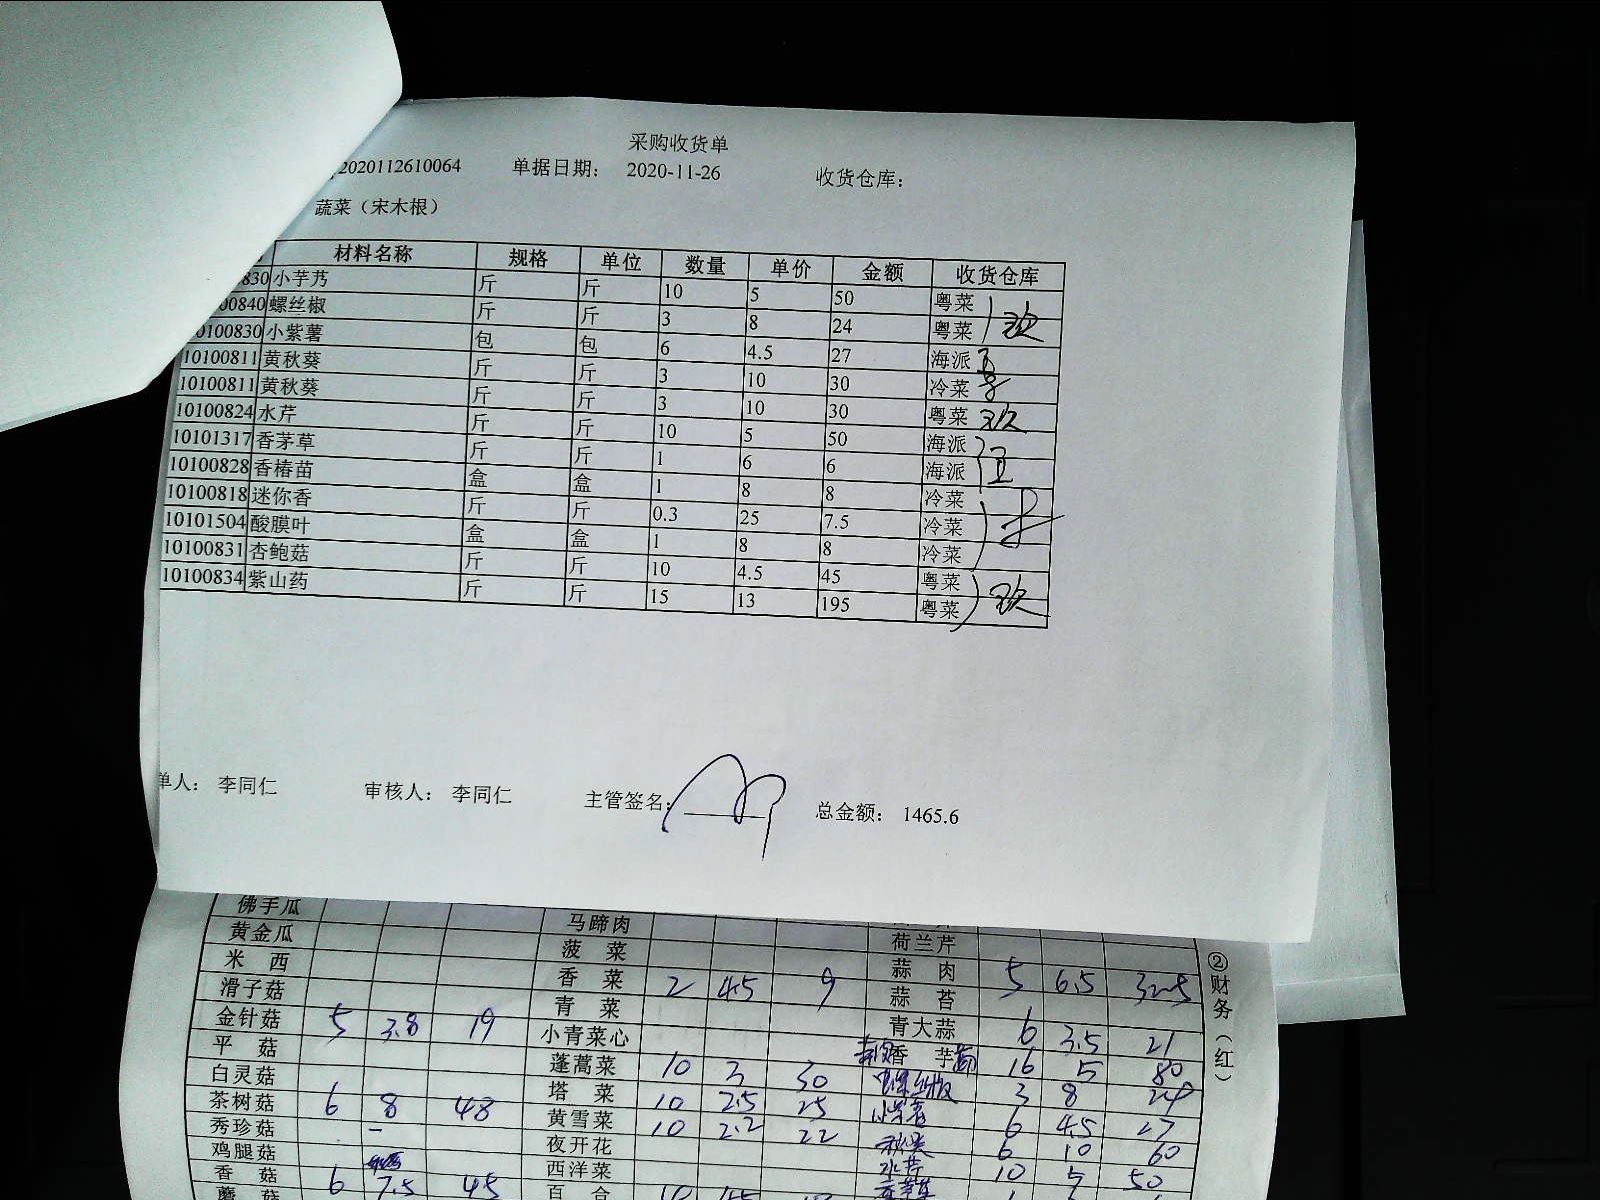 采购收货单
2020112610064 单据日期： 2020-11-26 收货仓库：
蔬菜（宋木根）
材料名称 规格 单位 数量 单价 金额 收货仓库
830 小芋艿 斤 斤 10 5 50 粤菜
00840 螺丝椒 斤 斤 3 8 24 粤菜
0100830 小紫薯 包 包 6 4.5 27 海派
10100811 黄秋葵 斤 斤 3 10 30 冷菜
10100811 黄秋葵 斤 斤 3 10 30 粤菜
10100824 水芹 斤 斤 10 5 50 海派
10101317 香茅草 斤 斤 1 6 6 海派
10100828 香椿苗 盒 盒 1 8 8 冷菜
10100818 迷你香 斤 斤 0.3 25 7.5 冷菜
10101504 酸膜叶 盒 盒 1 8 8 冷菜
10100831 杏鲍菇 斤 斤 10 4.5 45 粤菜
10100834 紫山药 斤 斤 15 13 195 粤菜
单人： 李同仁 审核人： 李同仁 主管签名： 总金额： 1465.6
佛手瓜 马蹄肉
黄金瓜 菠菜 荷兰芹
米西 香菜 2 4.5 9 蒜肉 5 6.5 32.5
滑子菇 青菜 蒜苔
金针菇 5 3.8 19 小青菜心 青大蒜 6 3.5 21
平菇 蓬蒿菜 10 3 30 香芋 16 5 80
白灵菇 塔菜 10 2.5 25 3 8 24
茶树菇 6 8 48 黄雪菜 10 2.2 22 小紫薯 6 4.5 27
秀珍菇 夜开花 秋葵 6 10 60
鸡腿菇 西洋菜 水芹 10 5 50
香菇 6 7.5 45 百合
蘑菇
②财务（红）